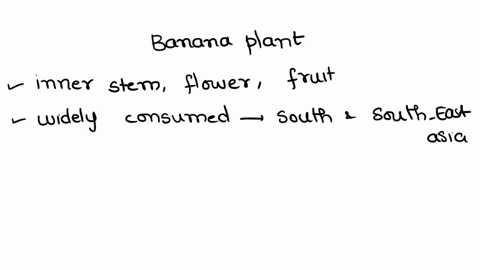 Banana plant
✓ inner stem, flower, fruit
✓ widely consumed → south & south-East
asia